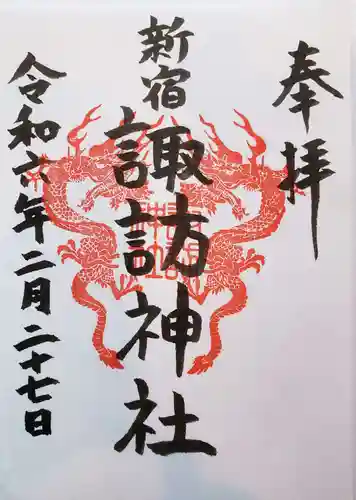 奉拝
新宿
諏訪神社
令和六年二月二十七日